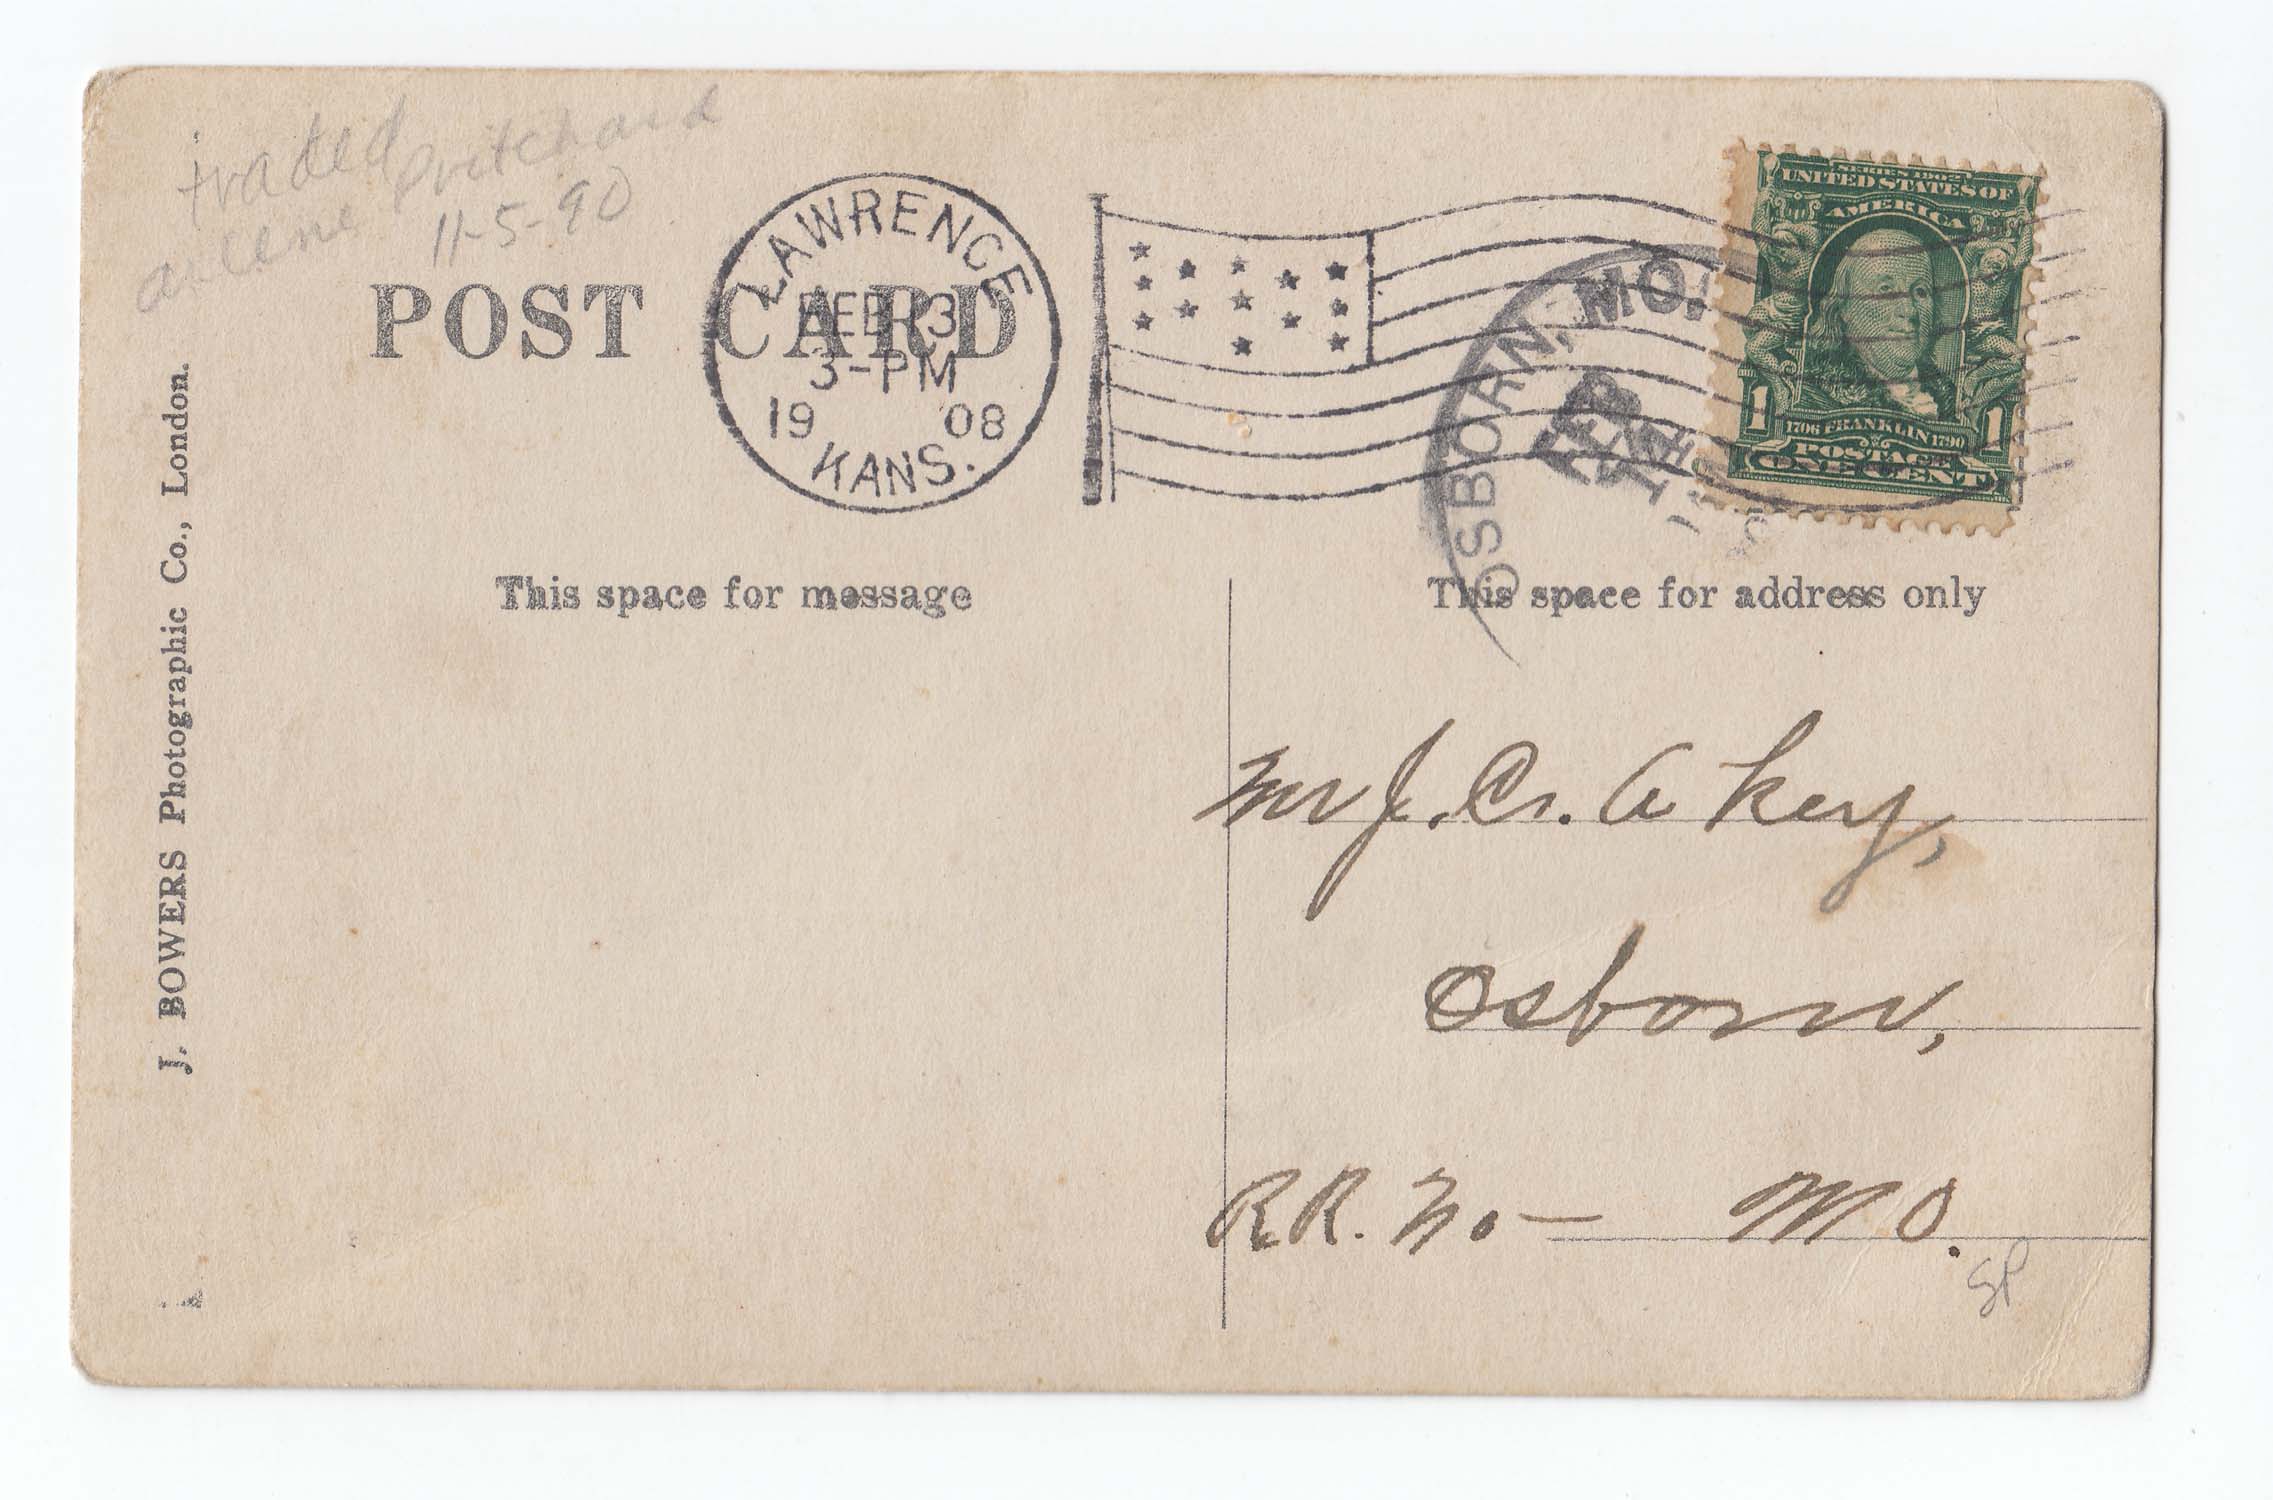 traded
arlene Pritchard
11-5-90
POST CARD
LAWRENCE
FEB 13
3-PM
19 08
KANS.
OSBORN, MO.
FEB
14
SERIES 1902
UNITED STATES OF
AMERICA
1 1
1706 FRANKLIN 1790
POSTAGE
ONE CENT
J. BOWERS Photographic Co., London.
This space for message
This space for address only
Mr J. C. Akey,
Osborn,
R.R. No — MO.
SP